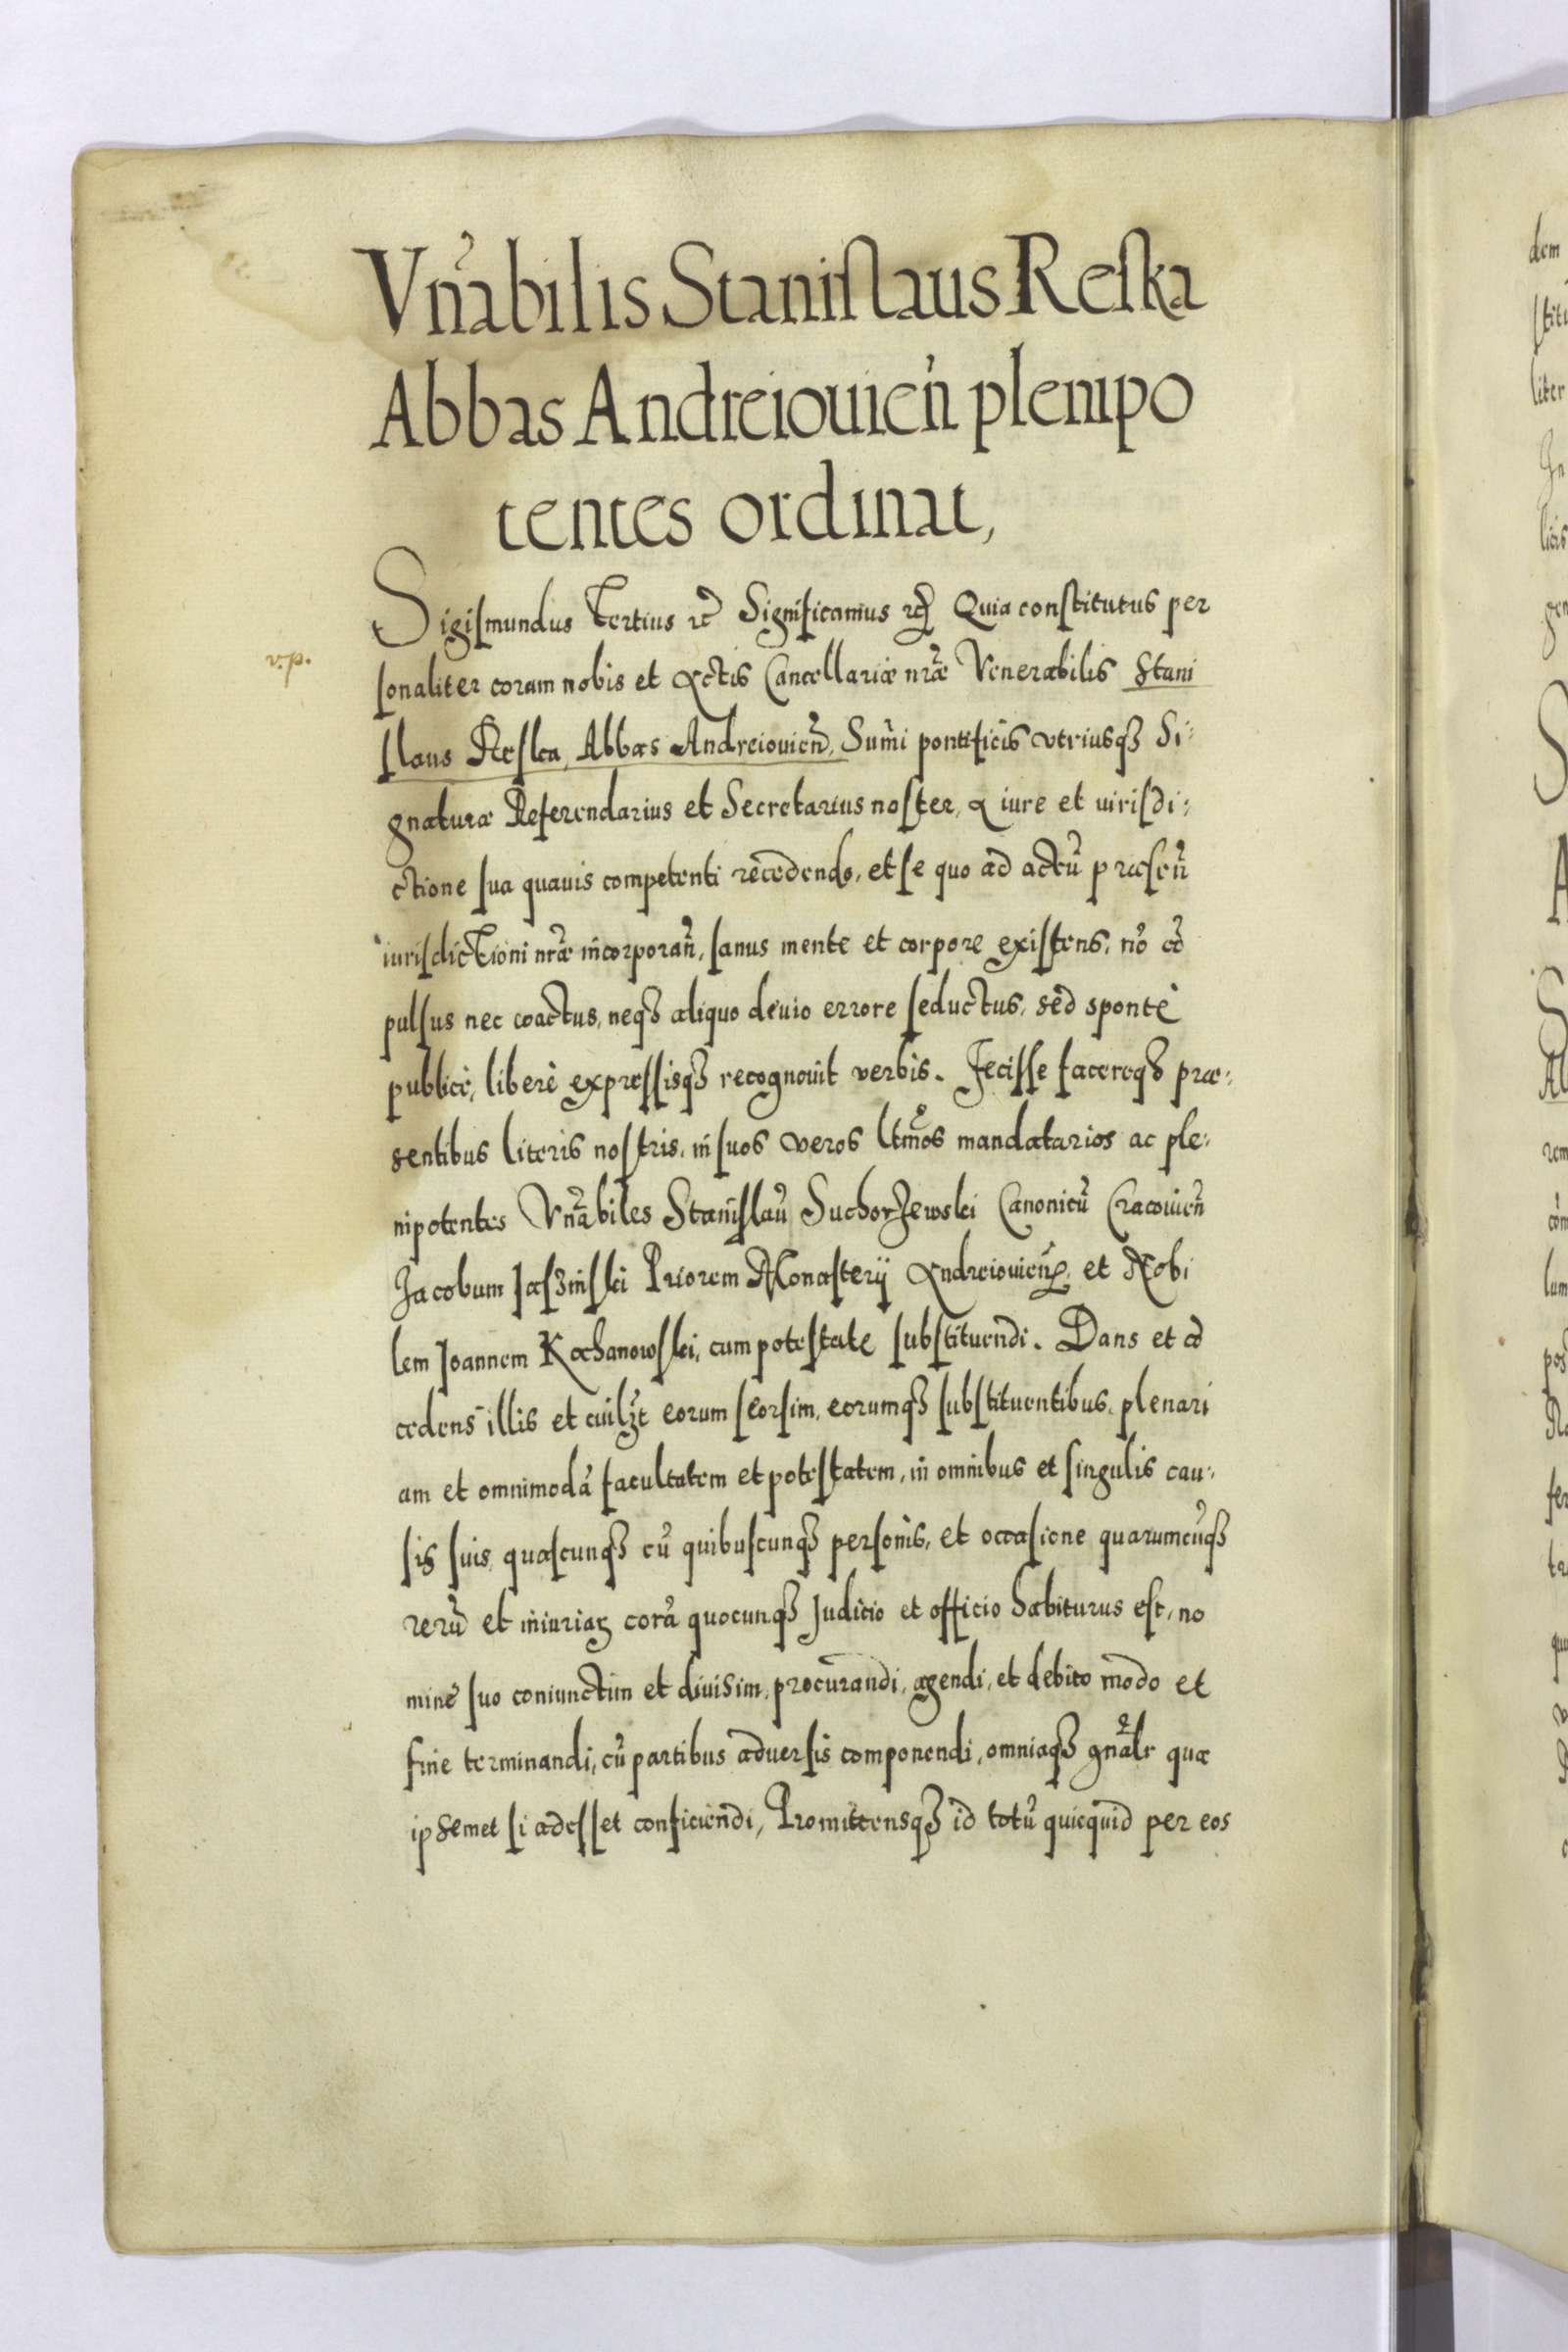 Vn̄abilis Staniſlaus Reſka
Abbas Andreiouień plenipo
tentes ordinat,
Sigiſmundus Tertius etc̄ Significamus etc̄ Quia conſtitutus per
v.p.
ſonaliter coram nobis et Actis Cancellariæ nr̄æ Venerabilis Stani
ſlaus Reſka, Abbas Andreiouień, Sum̄i pontificis vtriusqȝ Si:
gnaturæ Referendarius et Secretarius noſter, a iure et iurisdi:
ctione ſua quauis competenti recedendo, et ſe quo ad actū præſeń
iuriſdictioni nr̄æ incorporań, ſanus mente et corpore exiſtens, nō cō
pulſus nec coactus, neqȝ aliquo deuio errore ſeductus, sed sponte
publicè, liberè expreſſisqȝ recognouit verbis. Feciſſe facereqȝ præ:
sentibus literis noſtris, in ſuos veros ltm̄os mandatarios ac ple:
nipotentes Vn̄abiles Staniſlaū Suchorȝewski Canonicū Cracouień
Jacobum Jaſȝinſki Priorem Monaſterij Andreiouień, et Nobi
lem Joannem Kochanowſki, cum poteſtate ſubſtituendi. Dans et cō
cedens illis et cuilȝt eorum ſeorſim, eorumqȝ ſubſtituentibus, plenari
am et omnimodā facultatem et poteſtatem, in omnibus et ſingulis cau:
ſis ſuis, quaſcunqȝ cū quibuſcunqȝ perſonis, et occaſione quarumcūqȝ
rerū et iniuriaꝝ corā quocunqȝ Judicio et officio habiturus eſt, no
mine ſuo coniunctim et diuisim, procurandi, agendi, et debito modo et
fine terminandi, cū partibus aduerſis componendi, omniaqȝ gn̄alr quæ
ipsemet ſi adeſſet conficiendi, Promittensqȝ id totū quicquid per eos